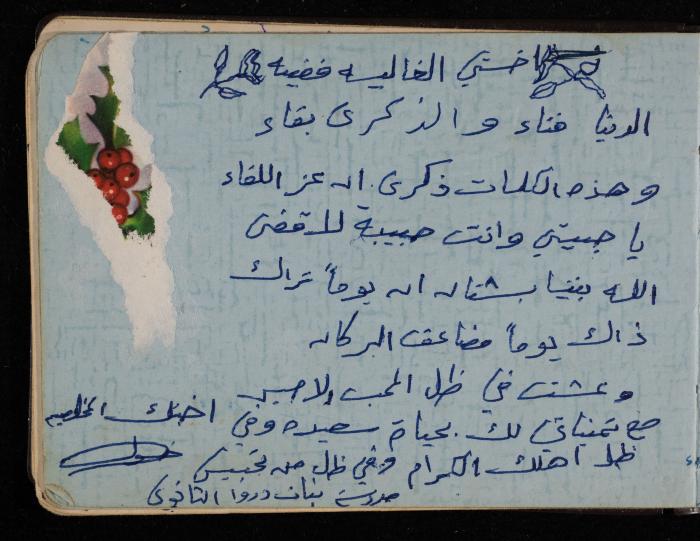 اختي الغاليه فضيه
الدنيا فناء والذكرى بقاء
وهذه الكلمات ذكرى ان عز اللقاء
يا حبيبتي وانت حبيبة لا قضى
الله بيننا بشتات ان يوماً تراك
ذاك يوماً مضاعف البركات
وعشت في ظل الحب والاحبه
مع تمنياتي لك بحياة سعيده وفي
ظل اهلك الكرام وفي ظل من تحبين
اختك المخلصه
مدرسة بنات دورا الثانوي